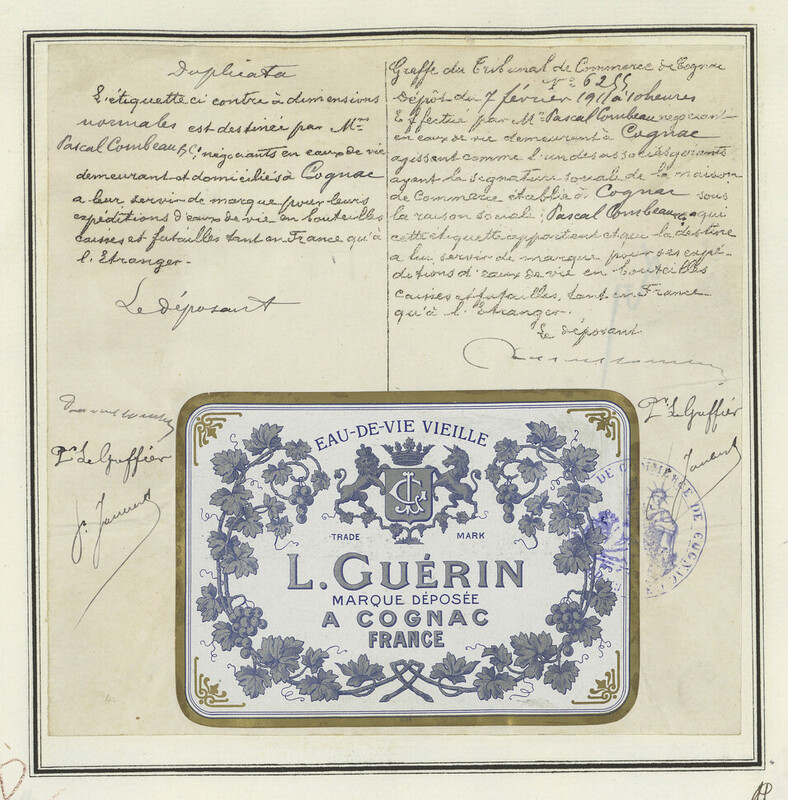 Duplicata
L'étiquette ci contre à dimensions
normales est destinée par Mrs
Pascal Combeau & Cie, négociants en eaux de vie
demeurant et domiciliés à Cognac
a leur servir de marque pour leurs
expéditions d'eaux de vie en bouteilles
caisses et futailles tant en France qu'à
l'Etranger.
Le déposant
Pr Le Greffier
Greffe du Tribunal de Commerce de Cognac
N° 6255
Dépôt du 7 février 1911 à 10 heures
Effectué par Mr Pascal Combeau négociant
en eaux de vie demeurant à Cognac
agissant comme l'un des associés gérants
ayant la signature sociale de la maison
de Commerce établie à Cognac sous
la raison sociale: Pascal Combeau & Cie, qui
cette étiquette appartient et qui la destine
a lui servir de marque pour ses expé-
ditions d'eaux de vie en bouteilles
caisses et futailles, tant en France
qu'à l'Etranger.
Le déposant
Pr Le Greffier
EAU-DE-VIE VIEILLE
TRADE MARK
L. GUÉRIN
MARQUE DÉPOSÉE
A COGNAC
FRANCE
DE COMMERCE DE COGNAC